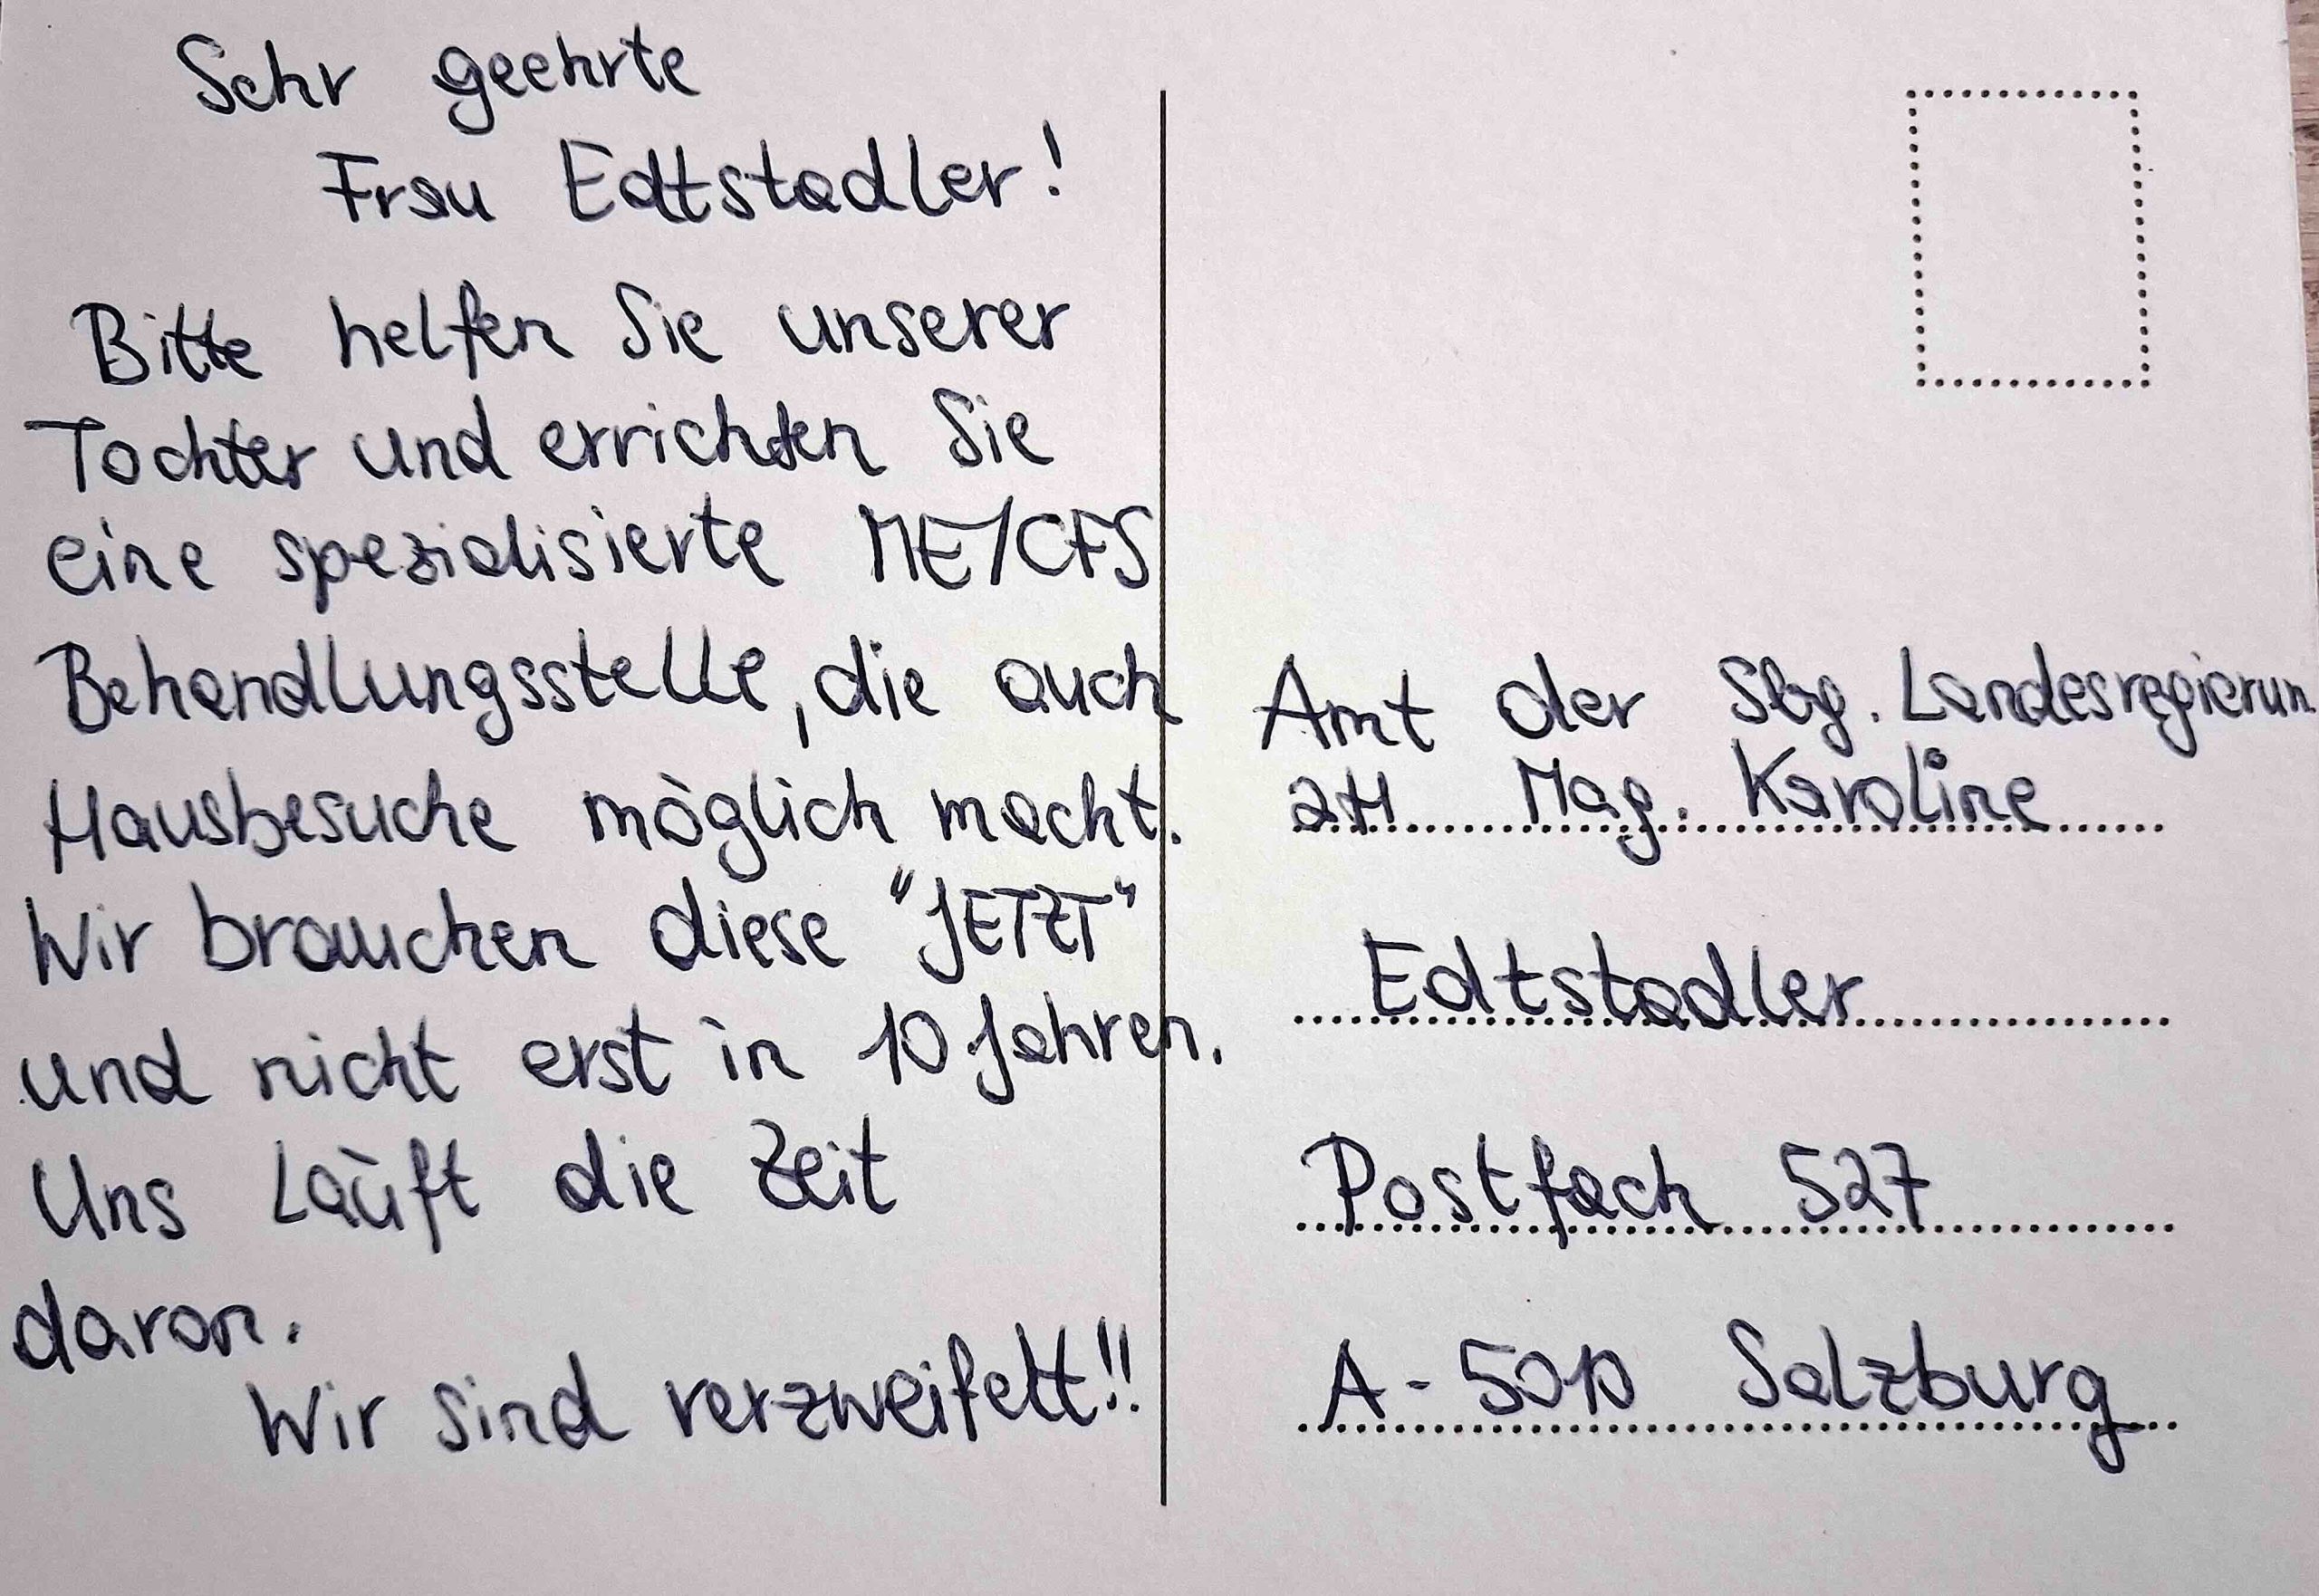 Sehr geehrte
Frau Edtstadler!
Bitte helfen Sie unserer
Tochter und errichten Sie
eine spezialisierte ME/CFS
Behandlungsstelle, die auch
Hausbesuche möglich macht.
Wir brauchen diese "JETZT"
und nicht erst in 10 Jahren.
Uns läuft die Zeit
davon.
Wir sind verzweifelt!!
Amt der Sbg. Landesregierun
zH Mag. Karoline
Edtstadler
Postfach 527
A-5010 Salzburg